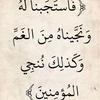 ﴿ فَاسْتَجَبْنَا لَهُ
وَنَجَّيْنَاهُ مِنَ الْغَمِّ
وَكَذَٰلِكَ نُنجِي
الْمُؤْمِنِينَ ﴾